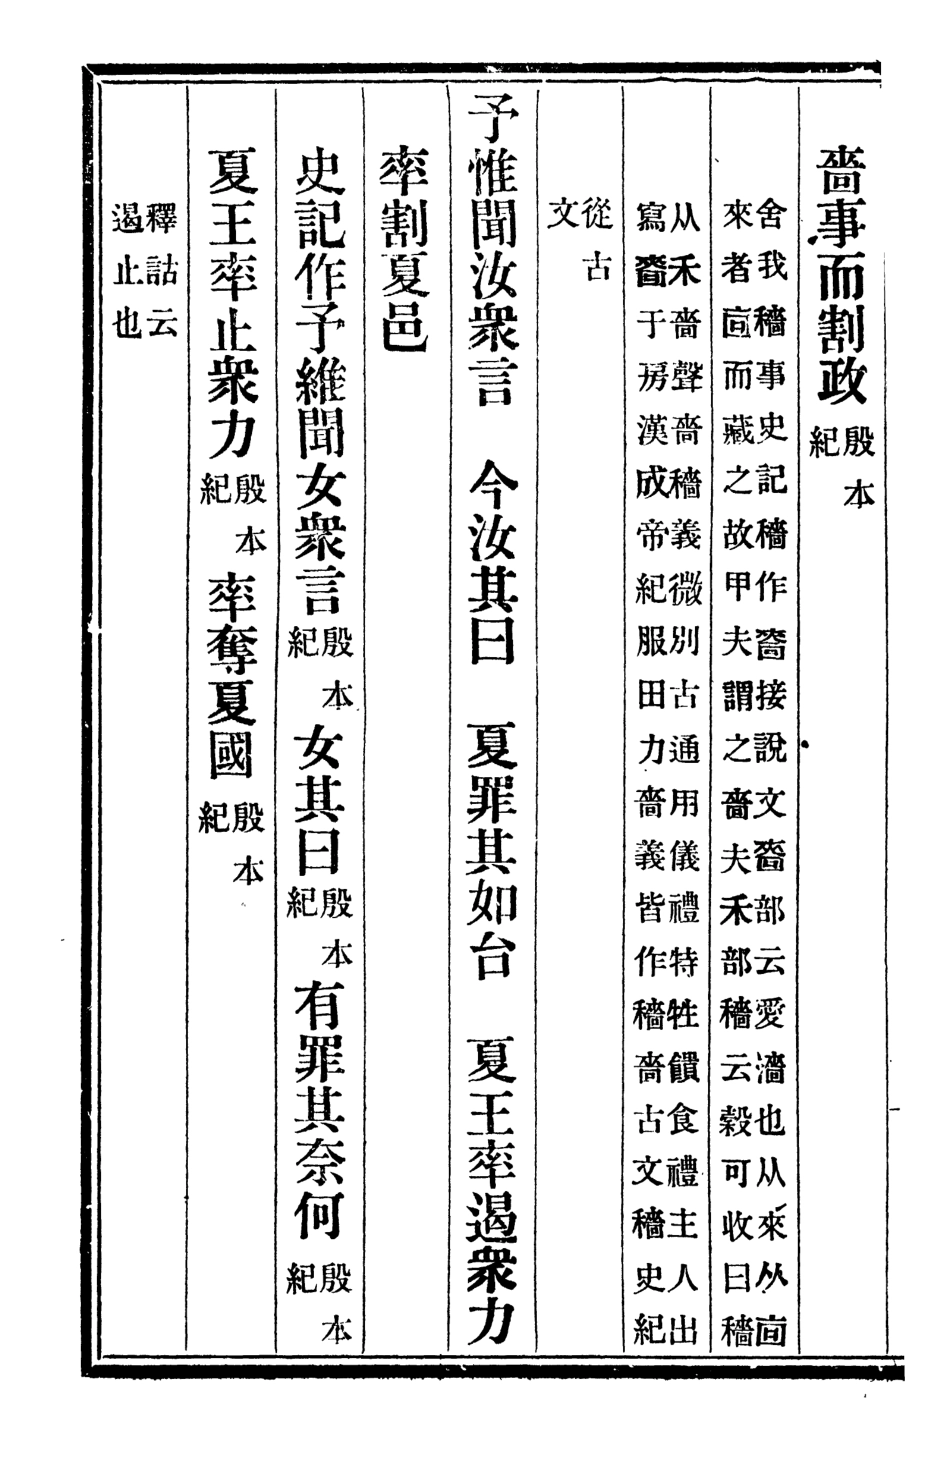 嗇事而割政殷本紀
舍我穡事史記穡作嗇接說文嗇部云愛濇也从來从㐭
來者㐭而藏之故甲夫謂之嗇夫禾部穡云穀可收曰穡
从禾嗇聲嗇穡義微別古通用儀禮特牲饋食禮主人出
寫嗇于房漢成帝紀服田力嗇義皆作穡嗇古文穡史紀
從古
文
予惟聞汝衆言　今汝其曰　夏罪其如台　夏王率遏衆力
率割夏邑
史記作予維聞女衆言殷本紀女其曰殷本紀有罪其奈何殷本紀
夏王率止衆力殷本紀率奪夏國殷本紀
釋詁云
遏止也